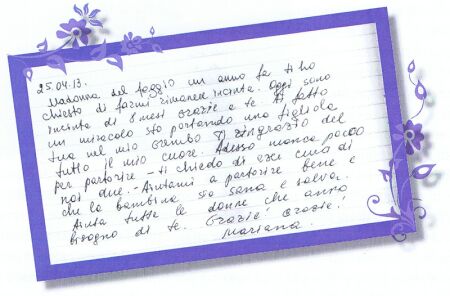 25.04.13.
Madonna del Faggio un anno fa ti ho
chiesto di farmi rimanere incinta. Oggi sono
incinta di 8 mesi grazie a te. Hi fatto
un miracolo sto portando una figliola
tua nel mio grembo Ti ringrazio del
tutto il mio cuore. Adesso manca poco
per partorire - ti chiedo di aver cura di
noi due. - Aiutami a partorire bene e
che la bambina sia sana e salva.
Aiuta tutte le donne che anno
bisogno di te. Grazie! Grazie!
Mariana.